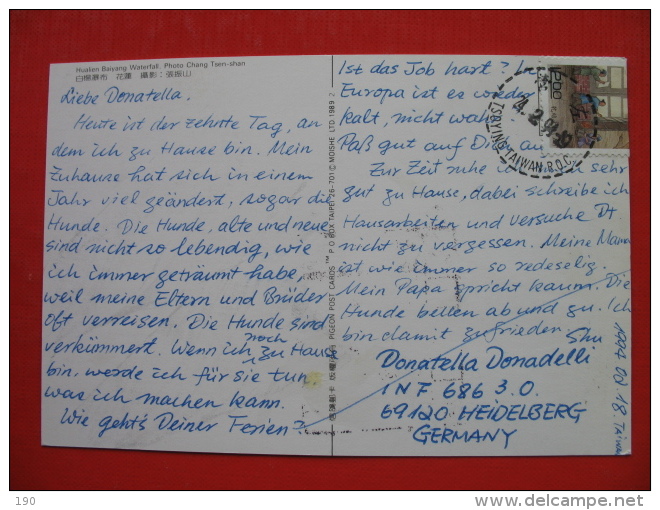 Hualien Baiyang Waterfall. Photo Chang Tsen-shan
白楊瀑布 花蓮 攝影：張振山
Liebe Donatella.
Heute ist der zehnte Tag, an
dem ich zu Hause bin. Mein
Zuhause hat sich in einem
Jahr viel geändert, sogar die
Hunde. Die Hunde, alte und neue
sind nicht so lebendig, wie
ich immer geträumt habe,
weil meine Eltern und Brüder
oft verreisen. Die Hunde sind
verkümmert. Wenn ich noch zu Haus
bin, werde ich für sie tun
was ich machen kann.
Wie geht's Deiner Ferien?
PIGEON POST CARDS ™ P O BOX TAIPEI 26-701 © MOISHE LTD 1989
Ist das Job hart? In
Europa ist es wieder
kalt, nicht wahr
Paß gut auf Dir auf
Zur Zeit ruhe ich mich sehr
gut zu Hause, dabei schreibe ich
Hausarbeiten und versuche Dt
nicht zu vergessen. Meine Mama
ist wie immer so redeselig.
Mein Papa spricht kaum. Die
Hunde bellen ab und zu. Ich
bin damit zufrieden. Shu
Donatella Donadelli
INF 686 3.0.
69120 HEIDELBERG
GERMANY
1200
TSOYING TAIWAN R.O.C.
190
http://www.delcampe.net